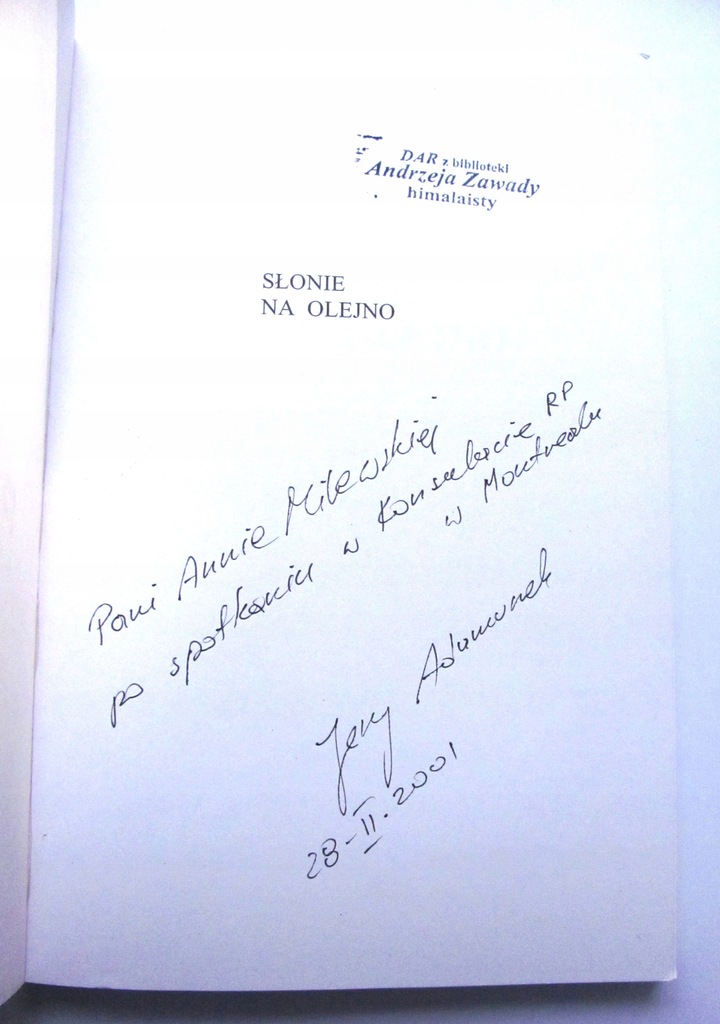 DAR z biblioteki
Andrzeja Zawady
himalaisty
SŁONIE
NA OLEJNO
Pani Annie Milewskiej
po spotkaniu w Konsulacie RP
w Montrealu
Jerzy Adamuszek
28-II-2001